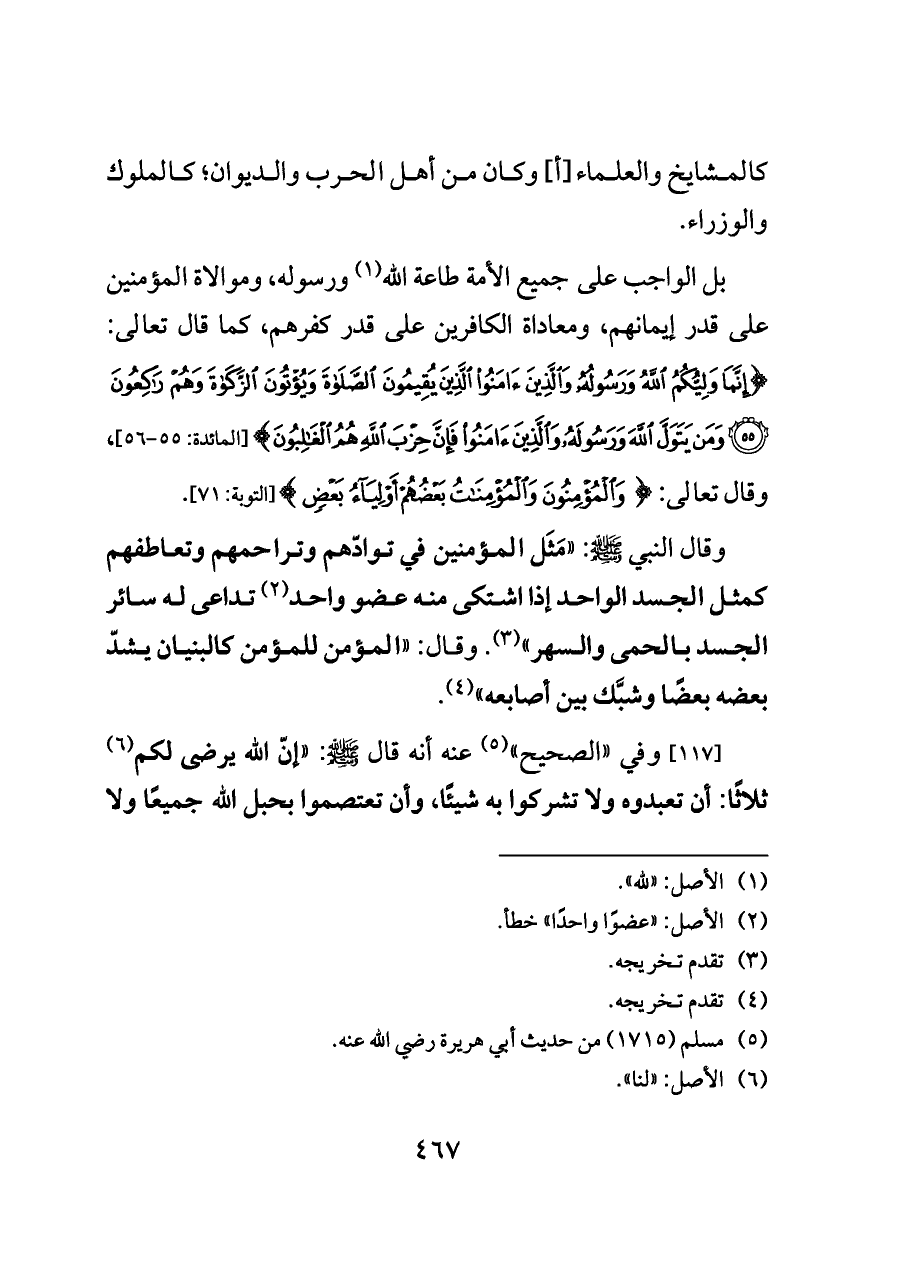 كالمشايخ والعلماء [أ] وكان من أهل الحرب والديوان؛ كالملوك
والوزراء.
بل الواجب على جميع الأمة طاعة الله(١) ورسوله، وموالاة المؤمنين
على قدر إيمانهم، ومعاداة الكافرين على قدر كفرهم، كما قال تعالى:
﴿إِنَّمَا وَلِيُّكُمُ ٱللَّهُ وَرَسُولُهُۥ وَٱلَّذِينَ ءَامَنُوا۟ ٱلَّذِينَ يُقِيمُونَ ٱلصَّلَوٰةَ وَيُؤْتُونَ ٱلزَّكَوٰةَ وَهُمْ رَٰكِعُونَ
٥٥ وَمَن يَتَوَلَّ ٱللَّهَ وَرَسُولَهُۥ وَٱلَّذِينَ ءَامَنُوا۟ فَإِنَّ حِزْبَ ٱللَّهِ هُمُ ٱلْغَٰلِبُونَ﴾ [المائدة: ٥٥-٥٦]،
وقال تعالى: ﴿ وَٱلْمُؤْمِنُونَ وَٱلْمُؤْمِنَٰتُ بَعْضُهُمْ أَوْلِيَآءُ بَعْضٍ ﴾ [التوبة: ٧١].
وقال النبي ﷺ: «مَثَل المؤمنين في توادّهم وتراحمهم وتعاطفهم
كمثل الجسد الواحد إذا اشتكى منه عضو واحد(٢) تداعى له سائر
الجسد بالحمى والسهر»(٣). وقال: «المؤمن للمؤمن كالبنيان يشدّ
بعضه بعضًا وشبَّك بين أصابعه»(٤).
[١١٧] وفي «الصحيح»(٥) عنه أنه قال ﷺ: «إنّ الله يرضى لكم(٦)
ثلاثًا: أن تعبدوه ولا تشركوا به شيئًا، وأن تعتصموا بحبل الله جميعًا ولا
(١) الأصل: «لله».
(٢) الأصل: «عضوًا واحدًا» خطأ.
(٣) تقدم تخريجه.
(٤) تقدم تخريجه.
(٥) مسلم (١٧١٥) من حديث أبي هريرة رضي الله عنه.
(٦) الأصل: «لنا».
٤٦٧